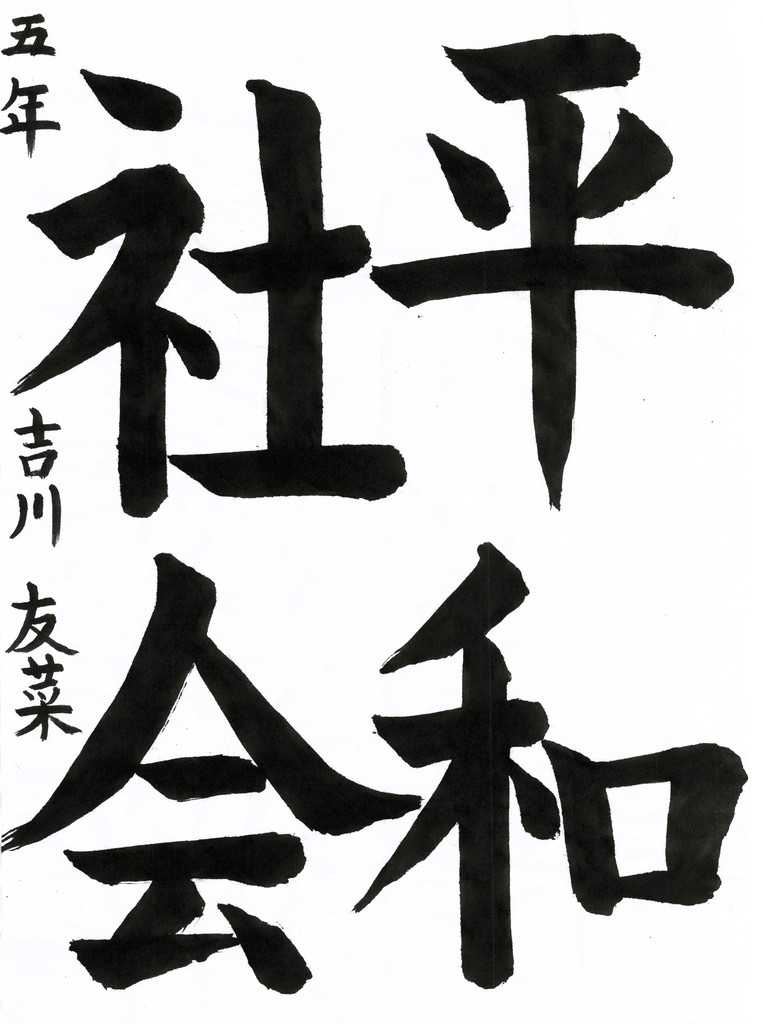 平和
社会
五年 吉川 友菜